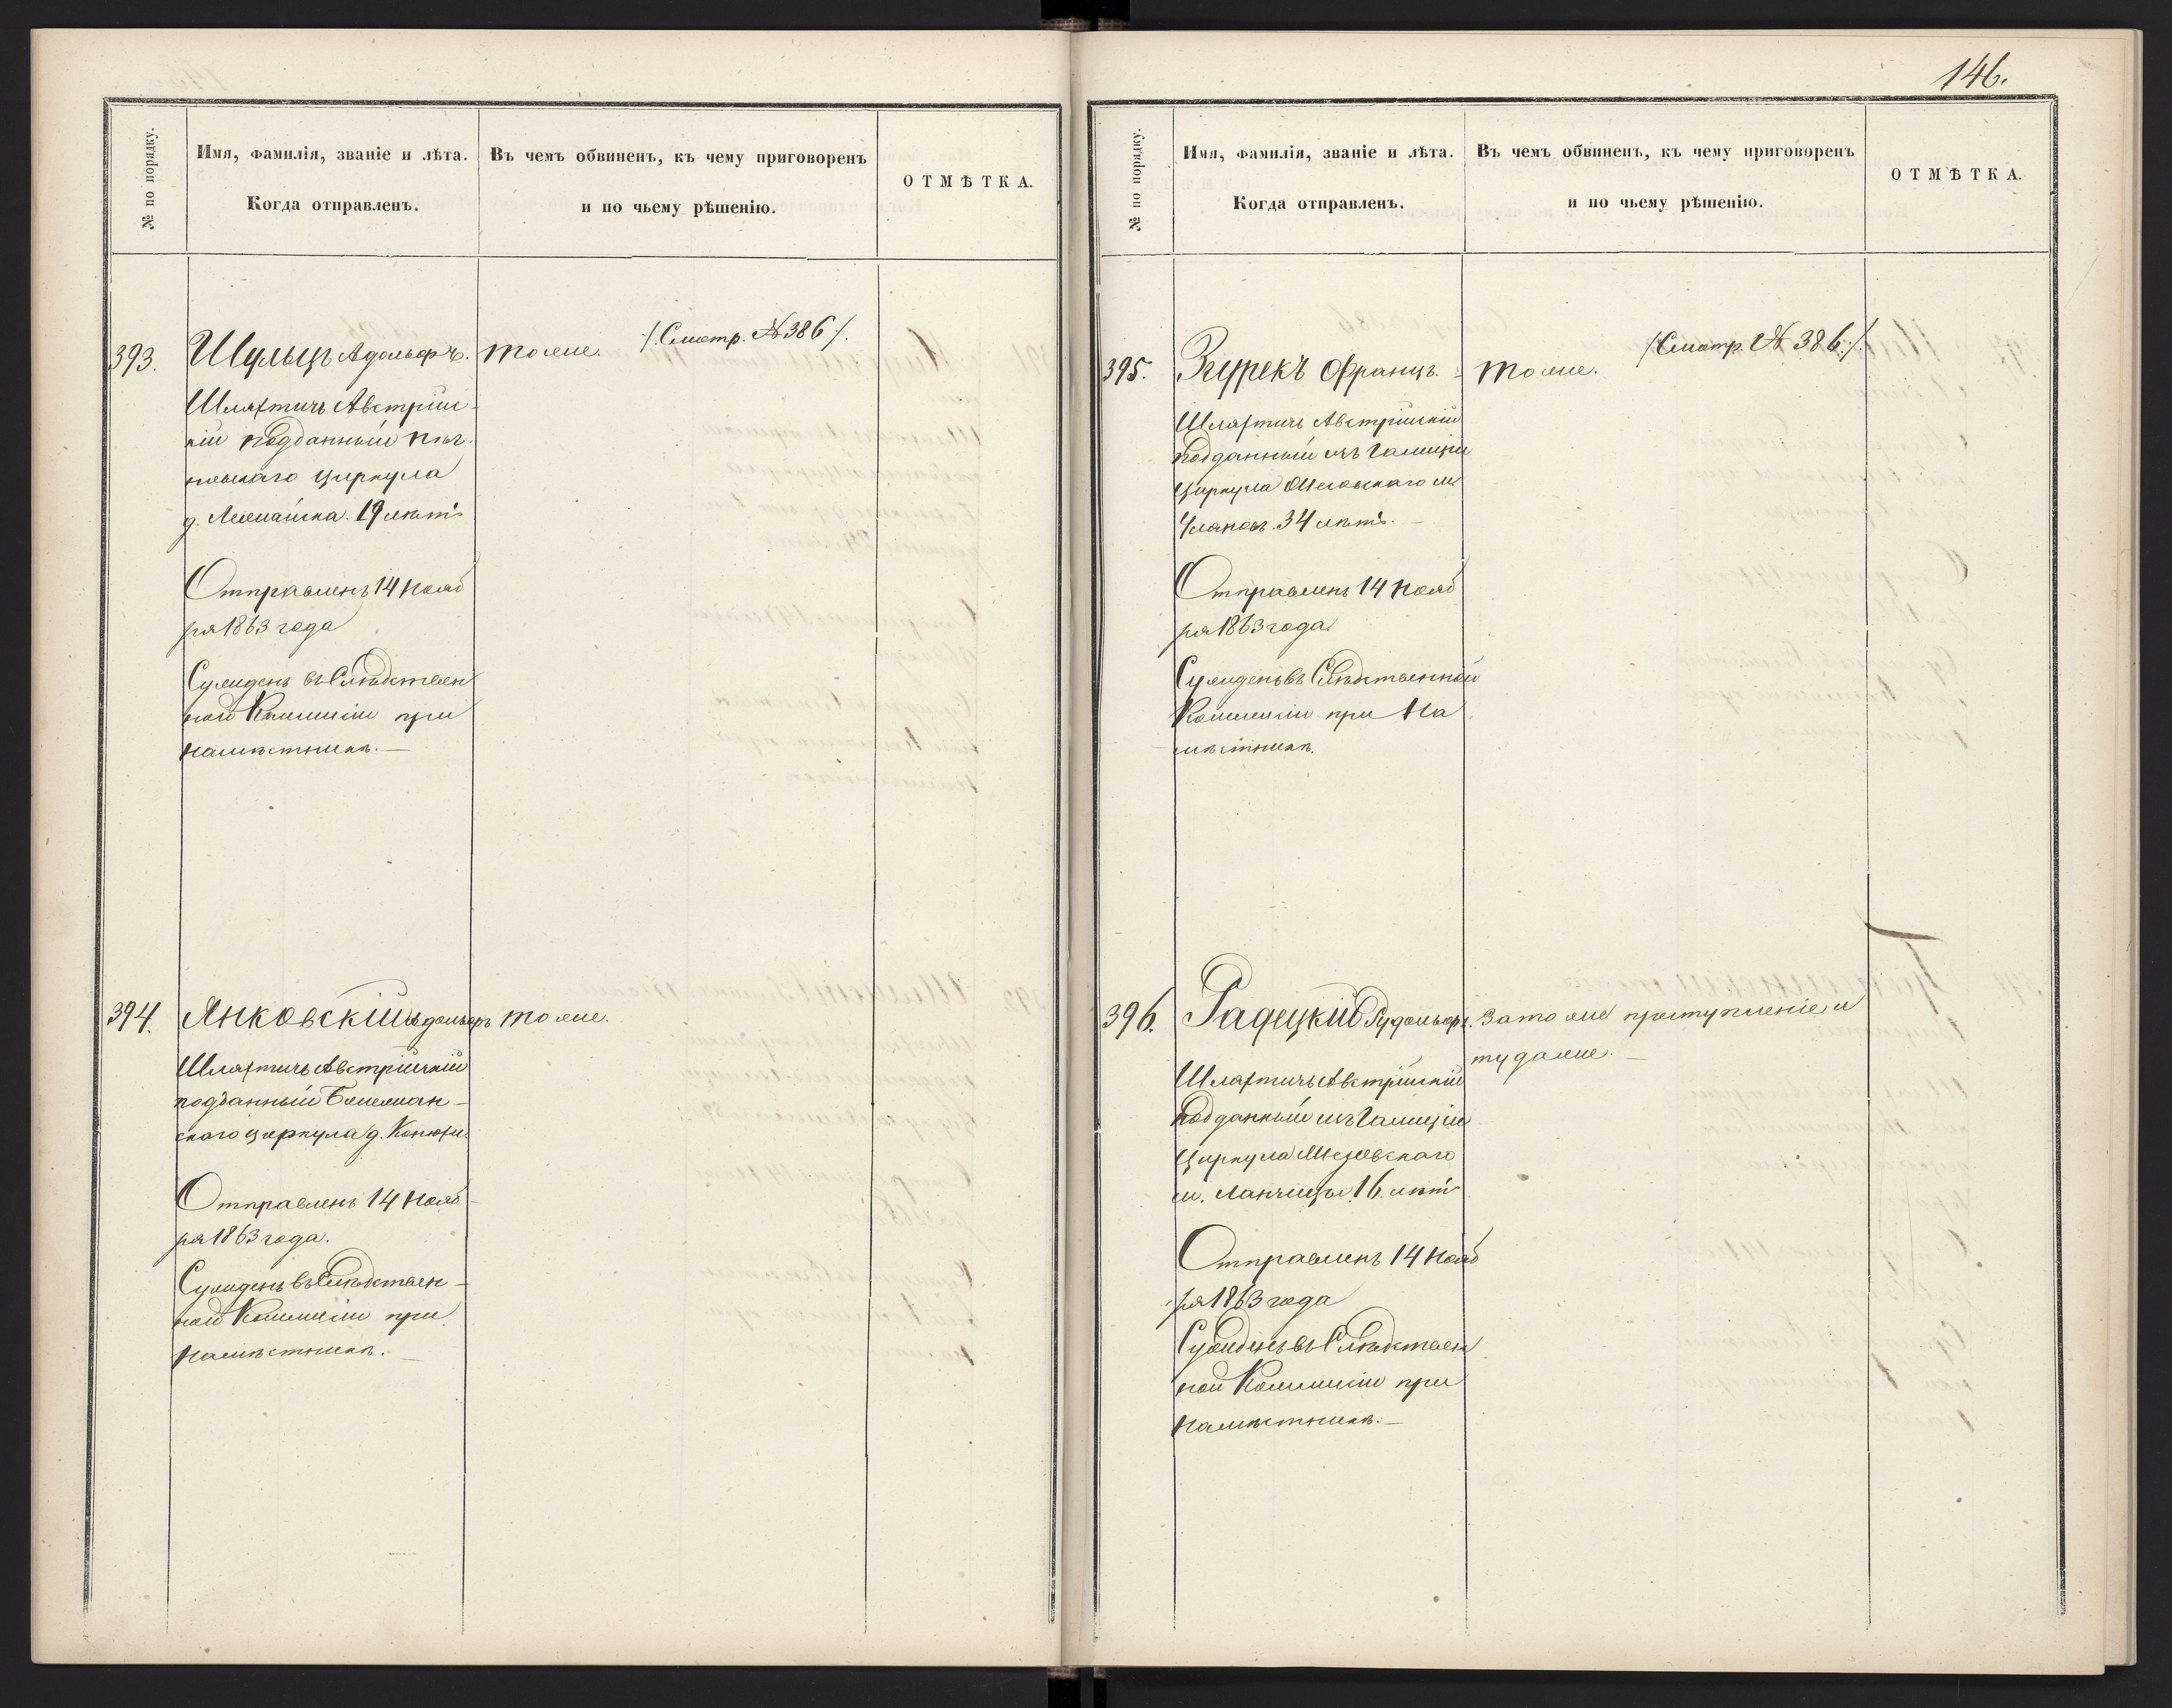 № по порядку.
Имя, фамилія, званіе и лѣта.
Когда отправленъ.
Въ чемъ обвиненъ, къ чему приговоренъ
и по чьему рѣшенію.
ОТМѢТКА.
393.
Шульцъ Адольфъ.
Шляхтичь Австрій-
кій подданный
циркула
д. 19 лѣтъ
Отправленъ 14 Нояб
ря 1863 года
Сужденъ въ Слѣдствен
ной Коммисіи при
Намѣстникѣ.—
тоже. /:Смотр. № 386:/.
394.
Янковскій Адольфъ
Шляхтичь Австрійскій
подданный
скаго циркула д.
Отправленъ 14 Нояб
ря 1863 года.
Сужденъ въ Слѣдствен-
ной Коммисіи при
Намѣстникѣ.—
тоже.
146.
№ по порядку.
Имя, фамилія, званіе и лѣта.
Когда отправленъ.
Въ чемъ обвиненъ, къ чему приговоренъ
и по чьему рѣшенію.
ОТМѢТКА.
395.
Згурекъ Францъ.
Шляхтичь Австрійскій
подданный изъ Галиціи
Циркула м.
34 лѣтъ.—
Отправленъ 14 Нояб
ря 1863 года.
Сужденъ въ Слѣдственной
Коммисіи при На
мѣстникѣ.
тоже. /:Смотр. № 386:/.
396.
Радецкій Рудольфъ.
Шляхтичь Австрійскій
подданный изъ Галиціи
Циркула
м. 16. лѣтъ
Отправленъ 14 Нояб
ря 1863 года
Сужденъ въ Слѣдствен
ной Коммисіи при
Намѣстникѣ.—
За тоже преступленіе и
туда же.—